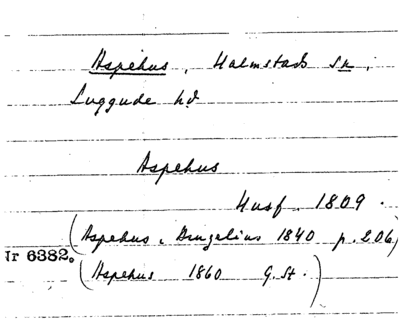 Aspehus, Halmstads sn,
Luggude hd
Aspehus
Husf. 1809.
(Aspehus, Gengelius 1840 p. 206)
Nr 6382.
(Aspehus 1860 G. St.)